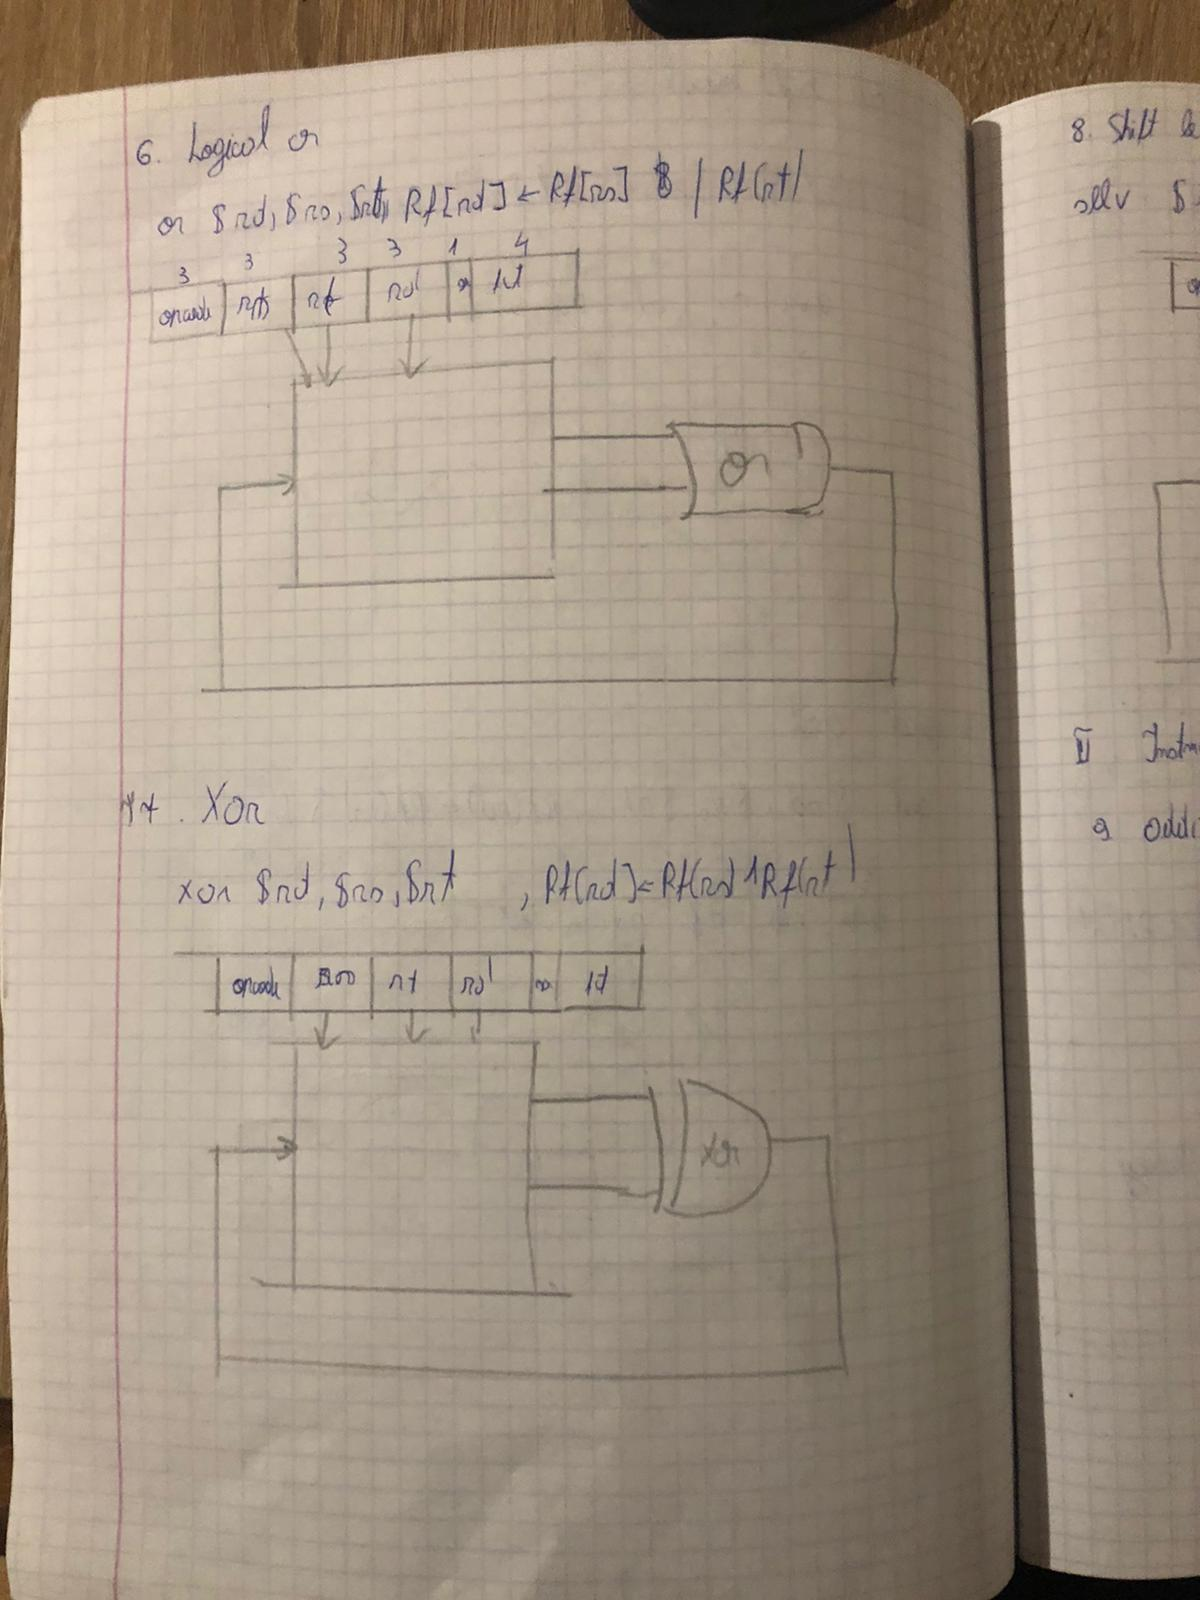 6. Logical or
or $rd, $rs, $rt, Rf[rd] ← Rf[rs] | Rf[rt]
3 3 3 3 1 4
opcode rs rt rd
or
7. Xor
xor $rd, $rs, $rt , Rf[rd] ← Rf[rs] ^ Rf[rt]
opcode rs rt rd
xor
8. Shift
sllv $
II
9